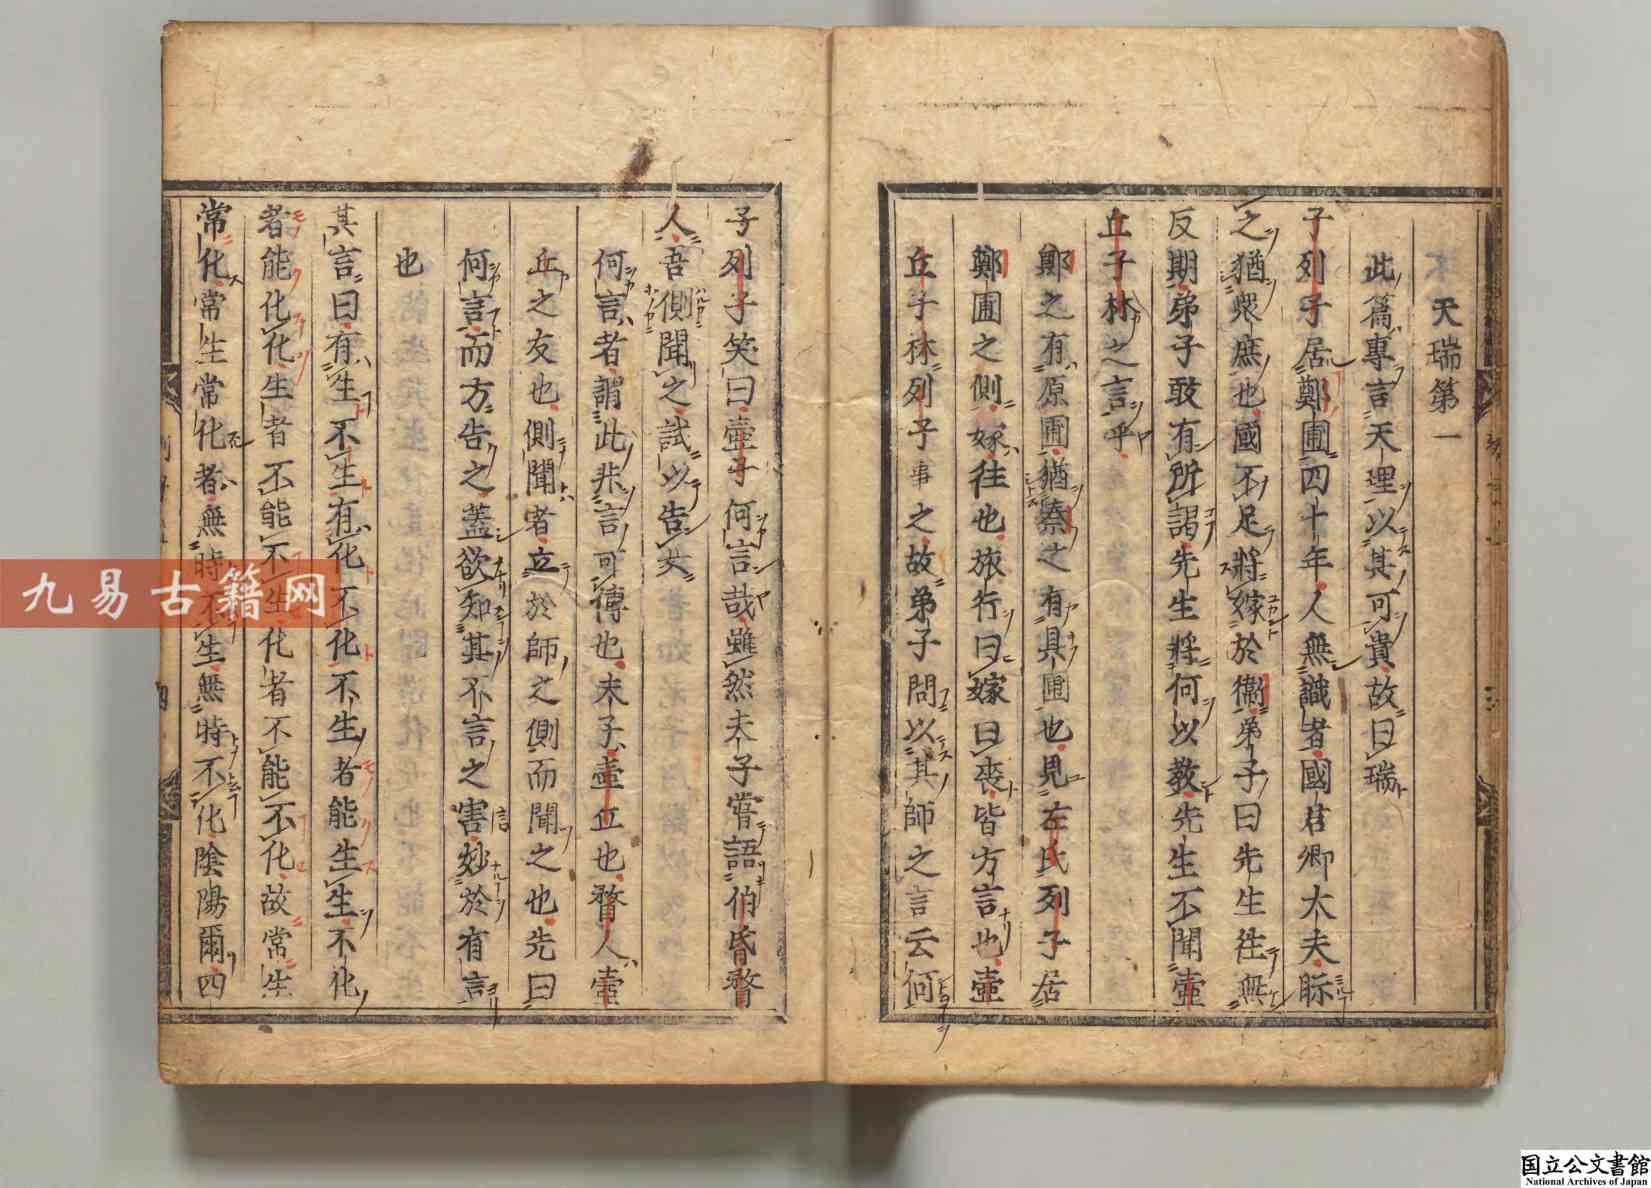 天瑞第一
此篇專言天理以其可貴故曰瑞
子列子居鄭圃四十年人無識者國君卿大夫眎
之猶衆庶也國不足將嫁於衞弟子曰先生往無
反期弟子敢有所謁先生將何以敎先生不聞壷
丘子林之言乎
鄭之有原圃猶秦之有具圃也見左氏列子居
鄭圃之側嫁徃也旅行曰嫁曰喪皆方言也壷
丘子林列子事之故弟子問以其師之言云何
子列子笑曰壷子何言哉雖然夫子嘗語伯昏瞀
人吾側聞之試以告女
何言者謂此非言可傳也夫子壷丘也瞀人壷
丘之友也側聞者立於師之側而聞之也先曰
何言而方告之蓋欲知其不言之害妙於有言
也
其言曰有生不生有化不化不生者能生生不化
者能化化生者不能不生化者不能不化故常生
常化常生常化者無時不生無時不化陰陽爾四
九易古籍网
国立公文書館
National Archives of Japan